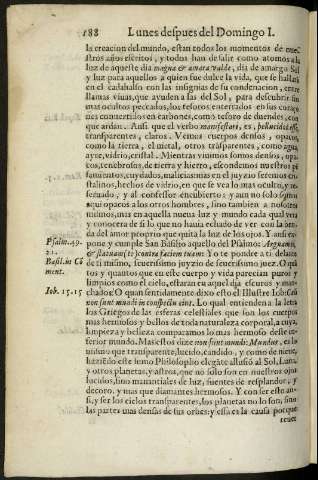 188 Lunes despues del Domingo I.
la creacion del mundo, estan todos los momentos de nues
tros años escritos, y todos han de salir como atomos a la
luz de aqueste dia magna & amara valde, dia de amargo Sol
y luz para aquellos a quien fue dulce la vida, que se hallarà
en el cadahalso con las insignias de su condenacion, entre
llamas vivas, que ayuden a las del Sol, para descubrir sus
mas ocultos peccados, los tesoros enterrados en sus coraço
nes convertidos en carbones, como tesoro de duendes, con
que ardan. Aussi que el verbo manifestari, es, pellucidos esse,
transparentes, claros. Vemos cuerpos densos, opacos,
como la tierra, el metal, otros trãsparentes, como agua,
ayre, vidrio, cristal. Mientras vivimos somos densos, opa-
cos, tenebrosos, de tierra y hierro, escondemos nuestros pẽ
samientos, cuydados, malicias: mas en el juyzio seremos cri
stalinos, hechos de vidrio, en que se vea lo mas oculto, y re-
servado, y al confessor encubierto: y aun no solo somos
aqui opacos a los otros hombres, sino tambien a nosotros
mismos, mas en aquella nueva luz y mundo cada qual verà
y conocera de si lo que no havia echado de ver con la ben-
da de amor proprio que quita la luz de los ojos. Y ansi ex-
Psalm. 49. pone y cumple San Basilio aquello del Psalmo: Arguam te,
21. & statuam (te) contra faciem tuam: Yo te pondre a ti delante
Basil. in Cõ de ti mismo, severissimo juyzio de severissimo juez. O què
ment. puntos y quantos que en este cuerpo y vida parecian puros y
limpios como el cielo, estaran en aquel dia escuros y man-
Iob. 15.15 chados? O quan sentidamente dixo esto el Illustre Iob: Cœli
non sunt mundi in conspectu eius. Lo qual entienden a la letra
los Griegos de las esferas celestiales que son los cuerpos
mas hermosos y bellos de toda naturaleza corporal, a cuya
limpieza y belleza comparamos lo mas hermoso deste in-
ferior mundo. Mas estos dize non sunt mundi: Mundus, es lo
mismo que transparente, lucido, candido, y como de nieve,
haziẽdo este sumo Philosopho elegãte allusiõ al Sol, Luna,
y otros planetas, y astros, que no solo son en nuestros ojos
lucidos, sino manantiales de luz, fuentes de resplandor, y
decoro, y mas que diamantes hermosos. Y con ser esto an-
si, y ser los cielos transparentes, los planetas no lo son, sino
las partes mas densas de sus orbes: y essa es la causa porque